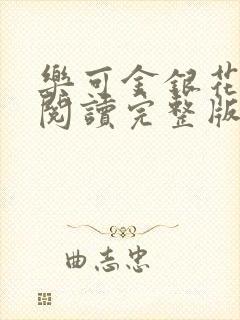 樂可金銀花
閱讀完整版
曲志忠